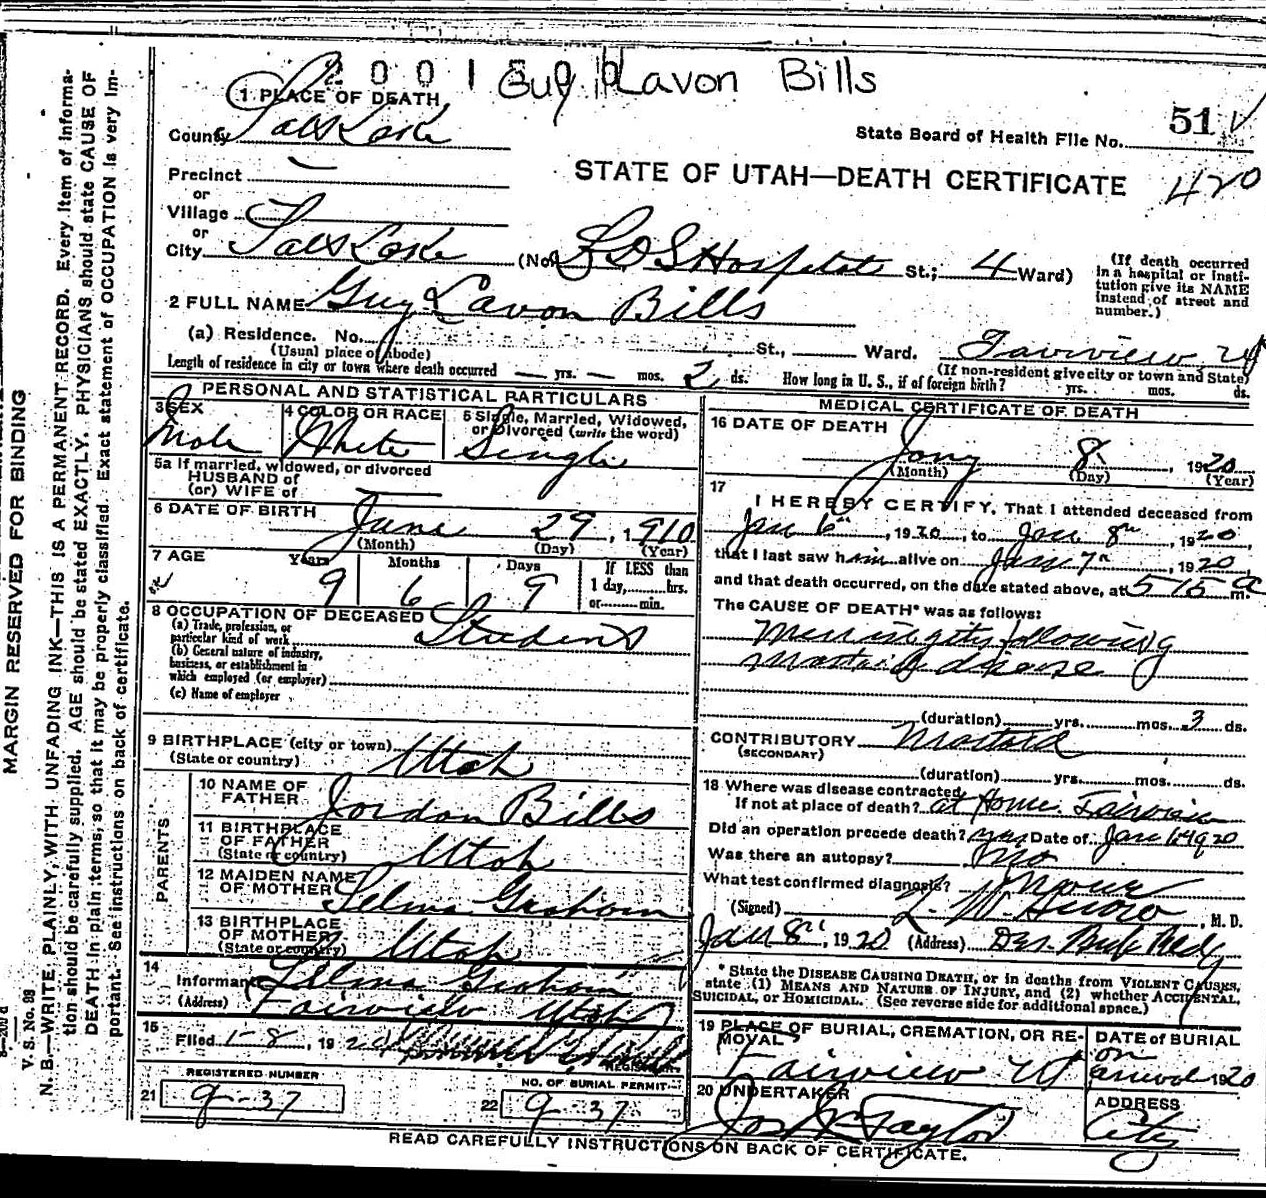 2001500 Guy Lavon Bills
1 PLACE OF DEATH
County Salt Lake
State Board of Health File No. 51
Precinct
STATE OF UTAH—DEATH CERTIFICATE 420
or
Village
or
City Salt Lake (No. L D S Hospital St.; 4 Ward)
(If death occurred
in a hospital or insti-
tution give its NAME
instead of street and
number.)
2 FULL NAME Guy Lavon Bills
(a) Residence. No. St., Ward. Fairview Ut
(Usual place of abode) (If non-resident give city or town and State)
Length of residence in city or town where death occurred — yrs. — mos. 2 ds. How long in U. S., if of foreign birth? yrs. mos. ds.
PERSONAL AND STATISTICAL PARTICULARS
3 SEX 4 COLOR OR RACE 5 Single, Married, Widowed,
or Divorced (write the word)
Male White Single
5a If married, widowed, or divorced
HUSBAND of
(or) WIFE of
6 DATE OF BIRTH June 29, 1910
(Month) (Day) (Year)
7 AGE Years Months Days If LESS than
1 day, hrs.
or min.
9 6 9
8 OCCUPATION OF DECEASED Student
(a) Trade, profession, or
particular kind of work
(b) General nature of industry,
business, or establishment in
which employed (or employer)
(c) Name of employer
9 BIRTHPLACE (city or town)
(State or country) Utah
PARENTS
10 NAME OF
FATHER Jordan Bills
11 BIRTHPLACE
OF FATHER
(State or country) Utah
12 MAIDEN NAME
OF MOTHER Selma Graham
13 BIRTHPLACE
OF MOTHER
(State or country) Utah
14
Informant Selma Graham
(Address) Fairview Utah
15
Filed 1-8, 1920
REGISTRAR.
REGISTERED NUMBER
21 9-37
NO. OF BURIAL PERMIT
22 9-37
MEDICAL CERTIFICATE OF DEATH
16 DATE OF DEATH
Jany 8, 1920
(Month) (Day) (Year)
17
I HEREBY CERTIFY, That I attended deceased from
Jan 6th, 1920, to Jan 8th, 1920,
that I last saw him alive on Jan 7th, 1920,
and that death occurred, on the date stated above, at 515 a m.
The CAUSE OF DEATH* was as follows:
Meningitis following
mastoid disease
(duration) yrs. mos. 3 ds.
CONTRIBUTORY Mastoid
(SECONDARY)
(duration) yrs. mos. ds.
18 Where was disease contracted
If not at place of death? at Home. Fairview
Did an operation precede death? yes Date of Jan 6-1920
Was there an autopsy? No
What test confirmed diagnosis?
(Signed) M. D.
Jan 8th, 1920 (Address)
* State the DISEASE CAUSING DEATH, or in deaths from VIOLENT CAUSES,
state (1) MEANS AND NATURE OF INJURY, and (2) whether ACCIDENTAL,
SUICIDAL, or HOMICIDAL. (See reverse side for additional space.)
19 PLACE OF BURIAL, CREMATION, OR RE-
MOVAL
Fairview Ut
DATE of BURIAL
on
arrival 1920
20 UNDERTAKER
Jos Wm Taylor
ADDRESS
City
READ CAREFULLY INSTRUCTIONS ON BACK OF CERTIFICATE.
MARGIN RESERVED FOR BINDING
V. S. No. 98
N. B.—WRITE PLAINLY, WITH UNFADING INK—THIS IS A PERMANENT RECORD. Every item of informa-
tion should be carefully supplied. AGE should be stated EXACTLY. PHYSICIANS should state CAUSE OF
DEATH in plain terms, so that it may be properly classified. Exact statement of OCCUPATION is very im-
portant. See instructions on back of certificate.